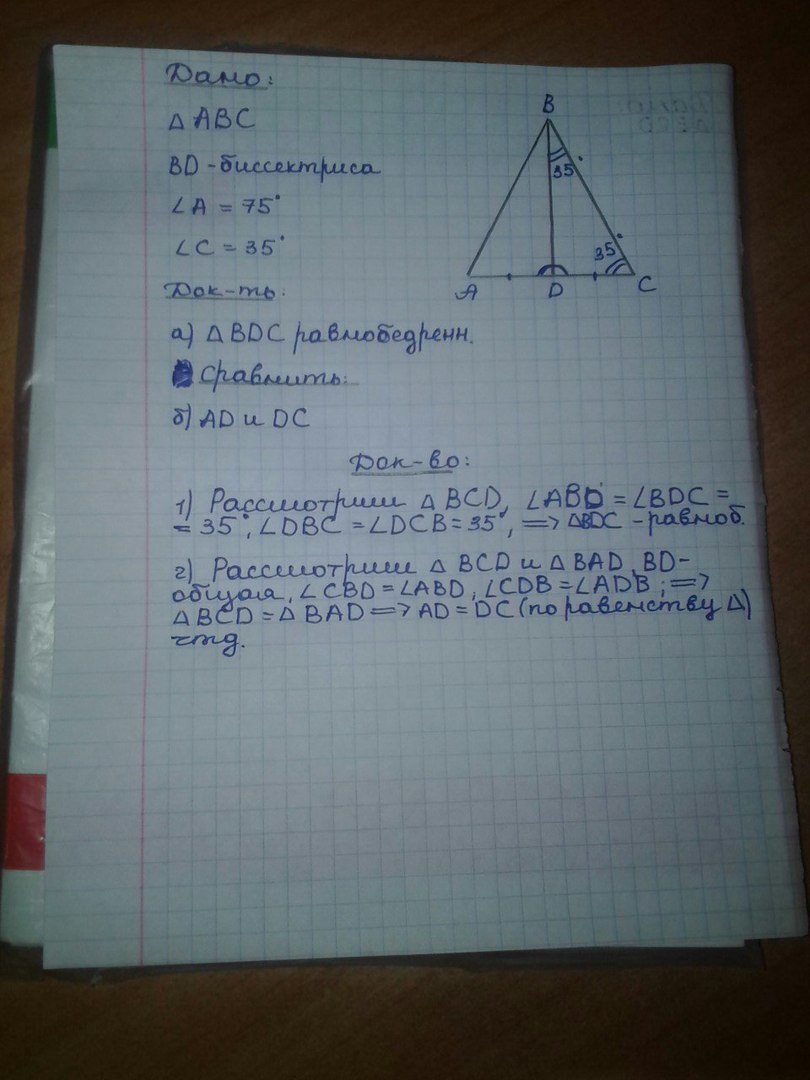 Дано:
△ ABC
BD - биссектриса
∠A = 75°
∠C = 35°
Док-ть:
а) △ BDC равнобедренн.
Сравнить:
б) AD и DC
B
35°
35°
A
D
C
Док-во:
1) Рассмотрим △ BCD, ∠ABD = ∠BDC =
= 35°, ∠DBC = ∠DCB = 35°, => △BDC - равноб.
2) Рассмотрим △ BCD и △ BAD, BD-
общая, ∠CBD = ∠ABD, ∠CDB = ∠ADB; =>
△ BCD = △ BAD => AD = DC (по равенству △)
чтд.